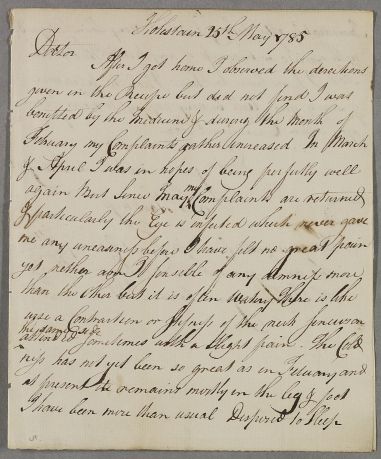 15th May 1785
Doctor
After I got home I observed the derections
given in the Receipe but did not find I was
benefited by the medicine & during the month of
February my Complaints rather increased In March
& April I was in hopes of being perfectly well
again But since May my Complaints are returned
& particularly the Eye is infected which never gave
me any uneasiness before I have felt no great pain
yet nether am I sensible of any dimness more
than the other but it is often watery There is like
a Contraction or of the neck
the same side
sometimes with a slight pain. The Cold
ness has not yet been so great as in February and
at present it remains mostly in the leg & foot
I have been more than usual Disposed to sleep